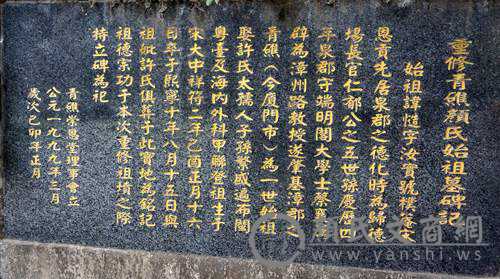 重修青礁顏氏始祖墓碑記
始祖諱慥字汝實號樸菴文
恩貢先居泉郡之德化時為歸德
場長官仁郁公之五世孫慶歷四
年泉郡守端明閣大學士蔡襄
辟為漳州路教授遂肇基漳郡之
青礁（今廈門市）為一世始祖
娶許氏太孺人子孫繁盛遍布閩
粵臺及海外科甲聯登祖生于
宋大中祥符二年己酉正月十六
日卒于熙寧十年八月十五日與
祖妣許氏俱葬于此寶地為銘記
祖德宗功于本次重修祖墳之際
特立碑為祀
青礁崇恩堂理事會立
公元一九九九年三月
歲次己卯年正月
www.yanshi.cn